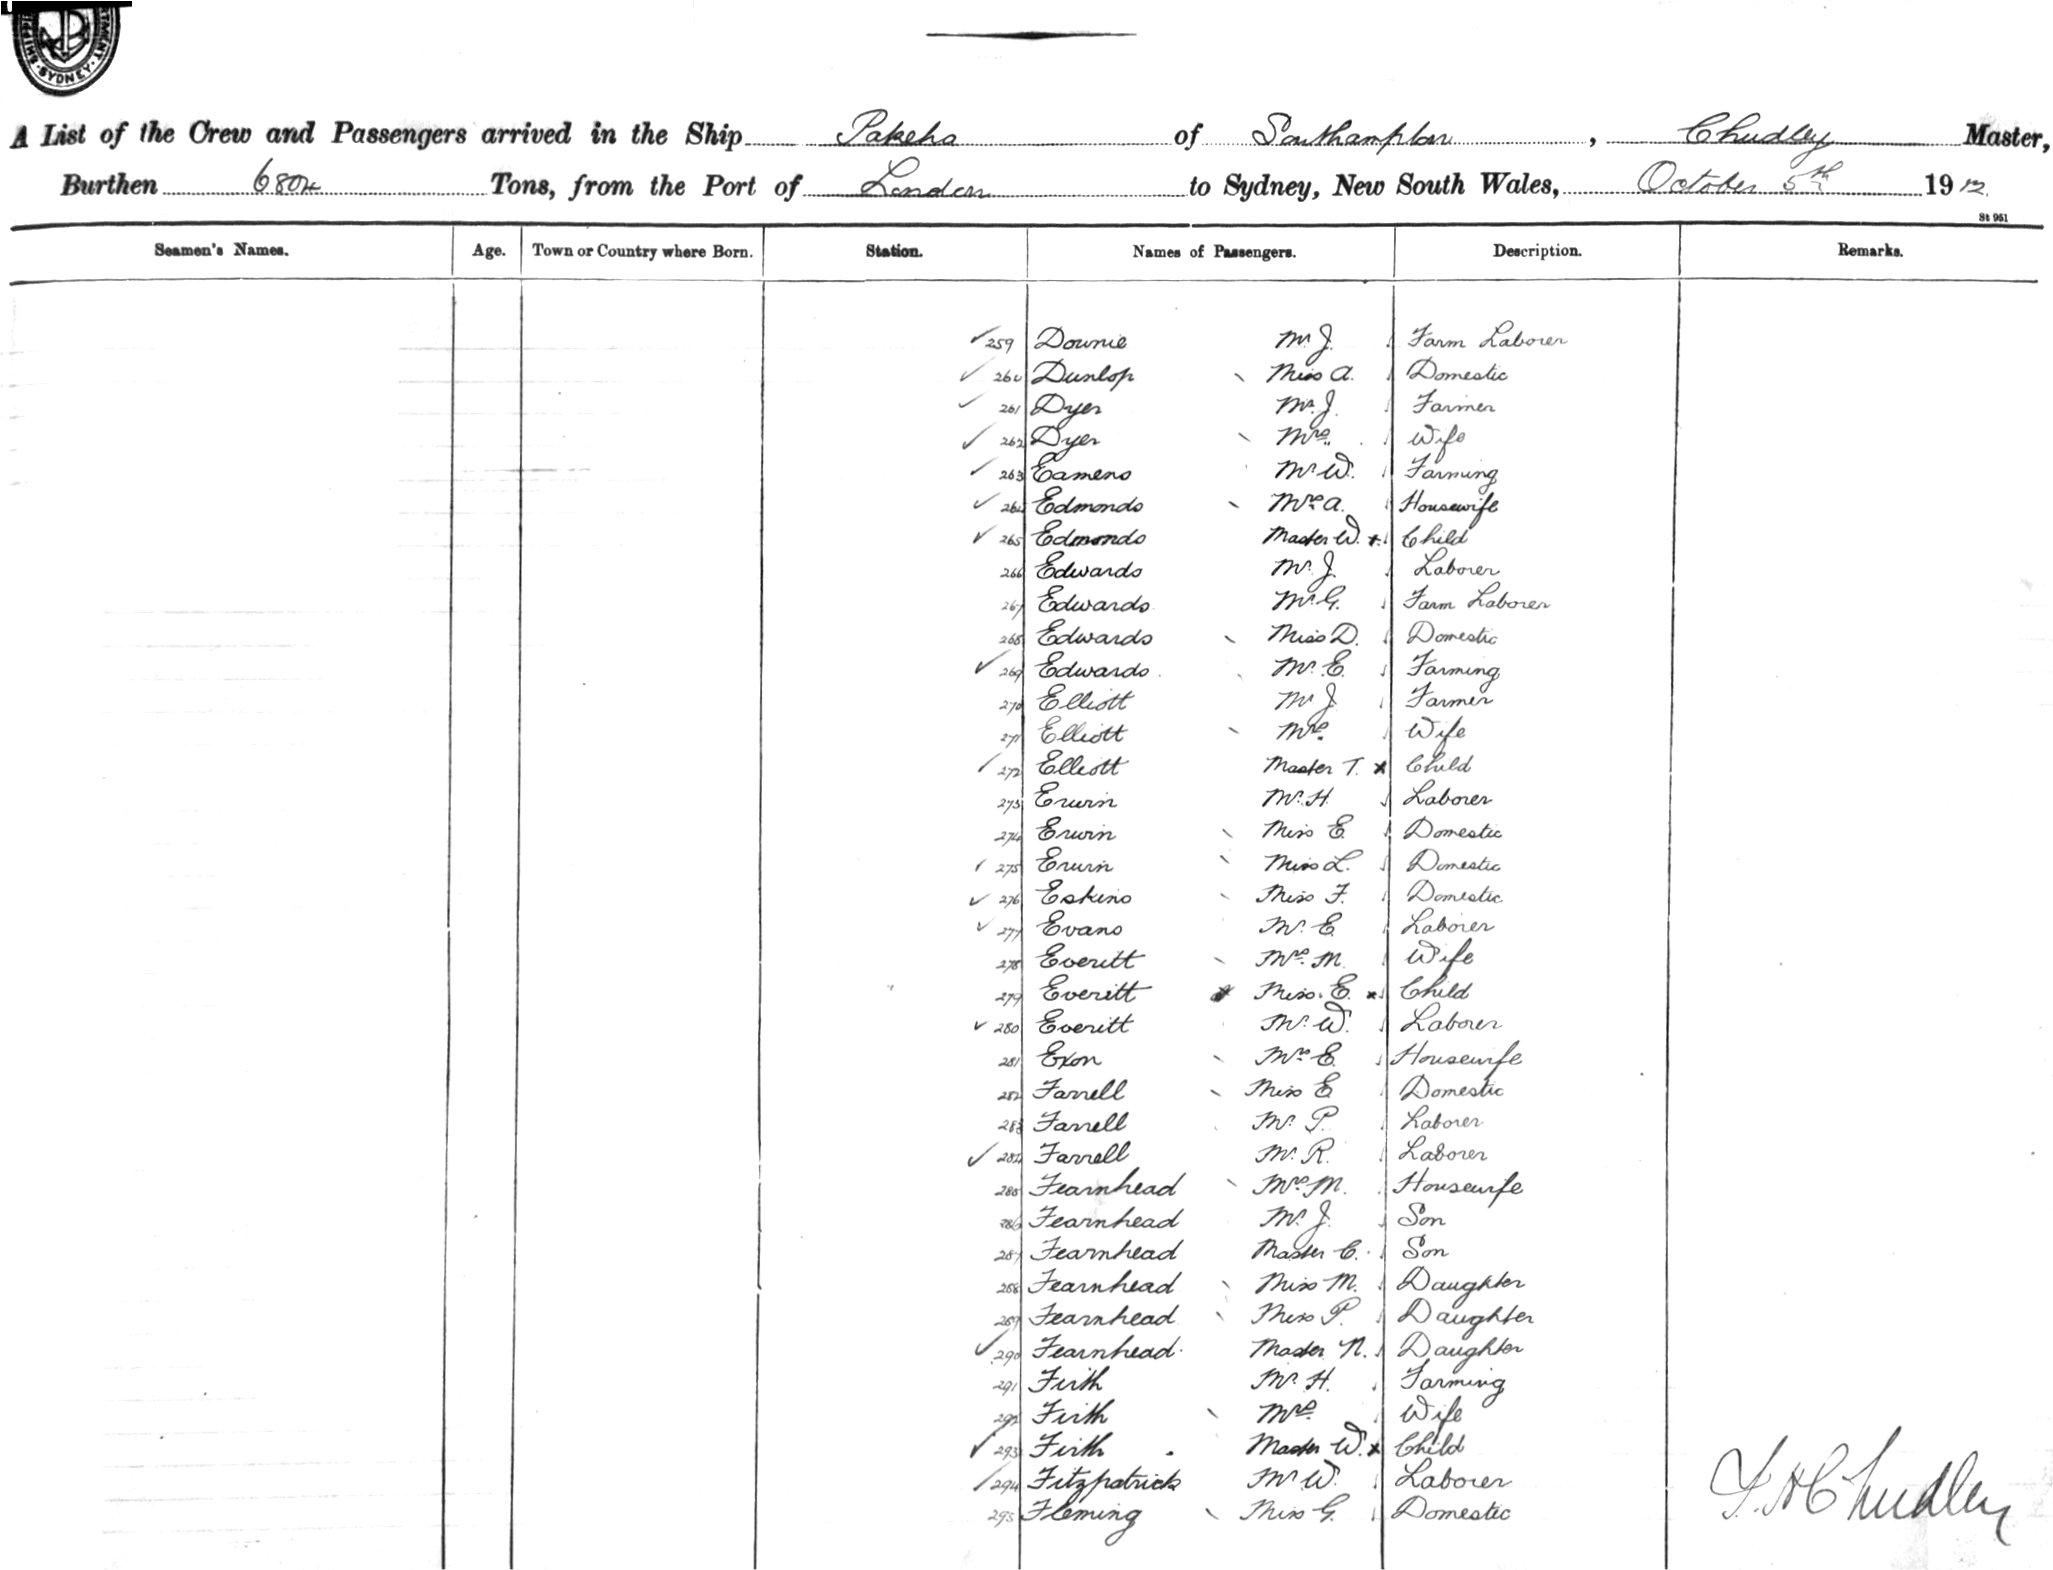 SYDNEY
A List of the Crew and Passengers arrived in the Ship Pakeha of Southampton, Chudley Master,
Burthen 6804 Tons, from the Port of London to Sydney, New South Wales, October 5th 1912
St 951
Seamen's Names. Age. Town or Country where Born. Station. Names of Passengers. Description. Remarks.
259 Downie Mr J. Farm Laborer
260 Dunlop Miss A. Domestic
261 Dyer Mr J. Farmer
262 Dyer Mrs. Wife
263 Eamens Mr W. Farming
264 Edmonds Mrs A. Housewife
265 Edmonds Master W. x Child
266 Edwards Mr J. Laborer
267 Edwards Mr G. Farm Laborer
268 Edwards Miss D. Domestic
269 Edwards Mr E. Farming
270 Elliott Mr J Farmer
271 Elliott Mrs. Wife
272 Elliott Master T. x Child
273 Erwin Mr. H. Laborer
274 Erwin Miss E. Domestic
275 Erwin Miss L. Domestic
276 Eskins Miss F. Domestic
277 Evans Mr. E. Laborer
278 Everitt Mrs. M. Wife
279 Everitt Miss. E. x Child
280 Everitt Mr. W. Laborer
281 Exon Mrs E. Housewife
282 Farrell Miss E Domestic
283 Farrell Mr. P. Laborer
284 Farrell Mr. R. Laborer
285 Fearnhead Mrs M. Housewife
286 Fearnhead Mr. J. Son
287 Fearnhead Master C. Son
288 Fearnhead Miss M. Daughter
289 Fearnhead Miss P. Daughter
290 Fearnhead Master N. Daughter
291 Firth Mr. H. Farming
292 Firth Mrs. Wife
293 Firth Master W. x Child
294 Fitzpatrick Mr W. Laborer
295 Fleming Miss G. Domestic
F. H Chudley